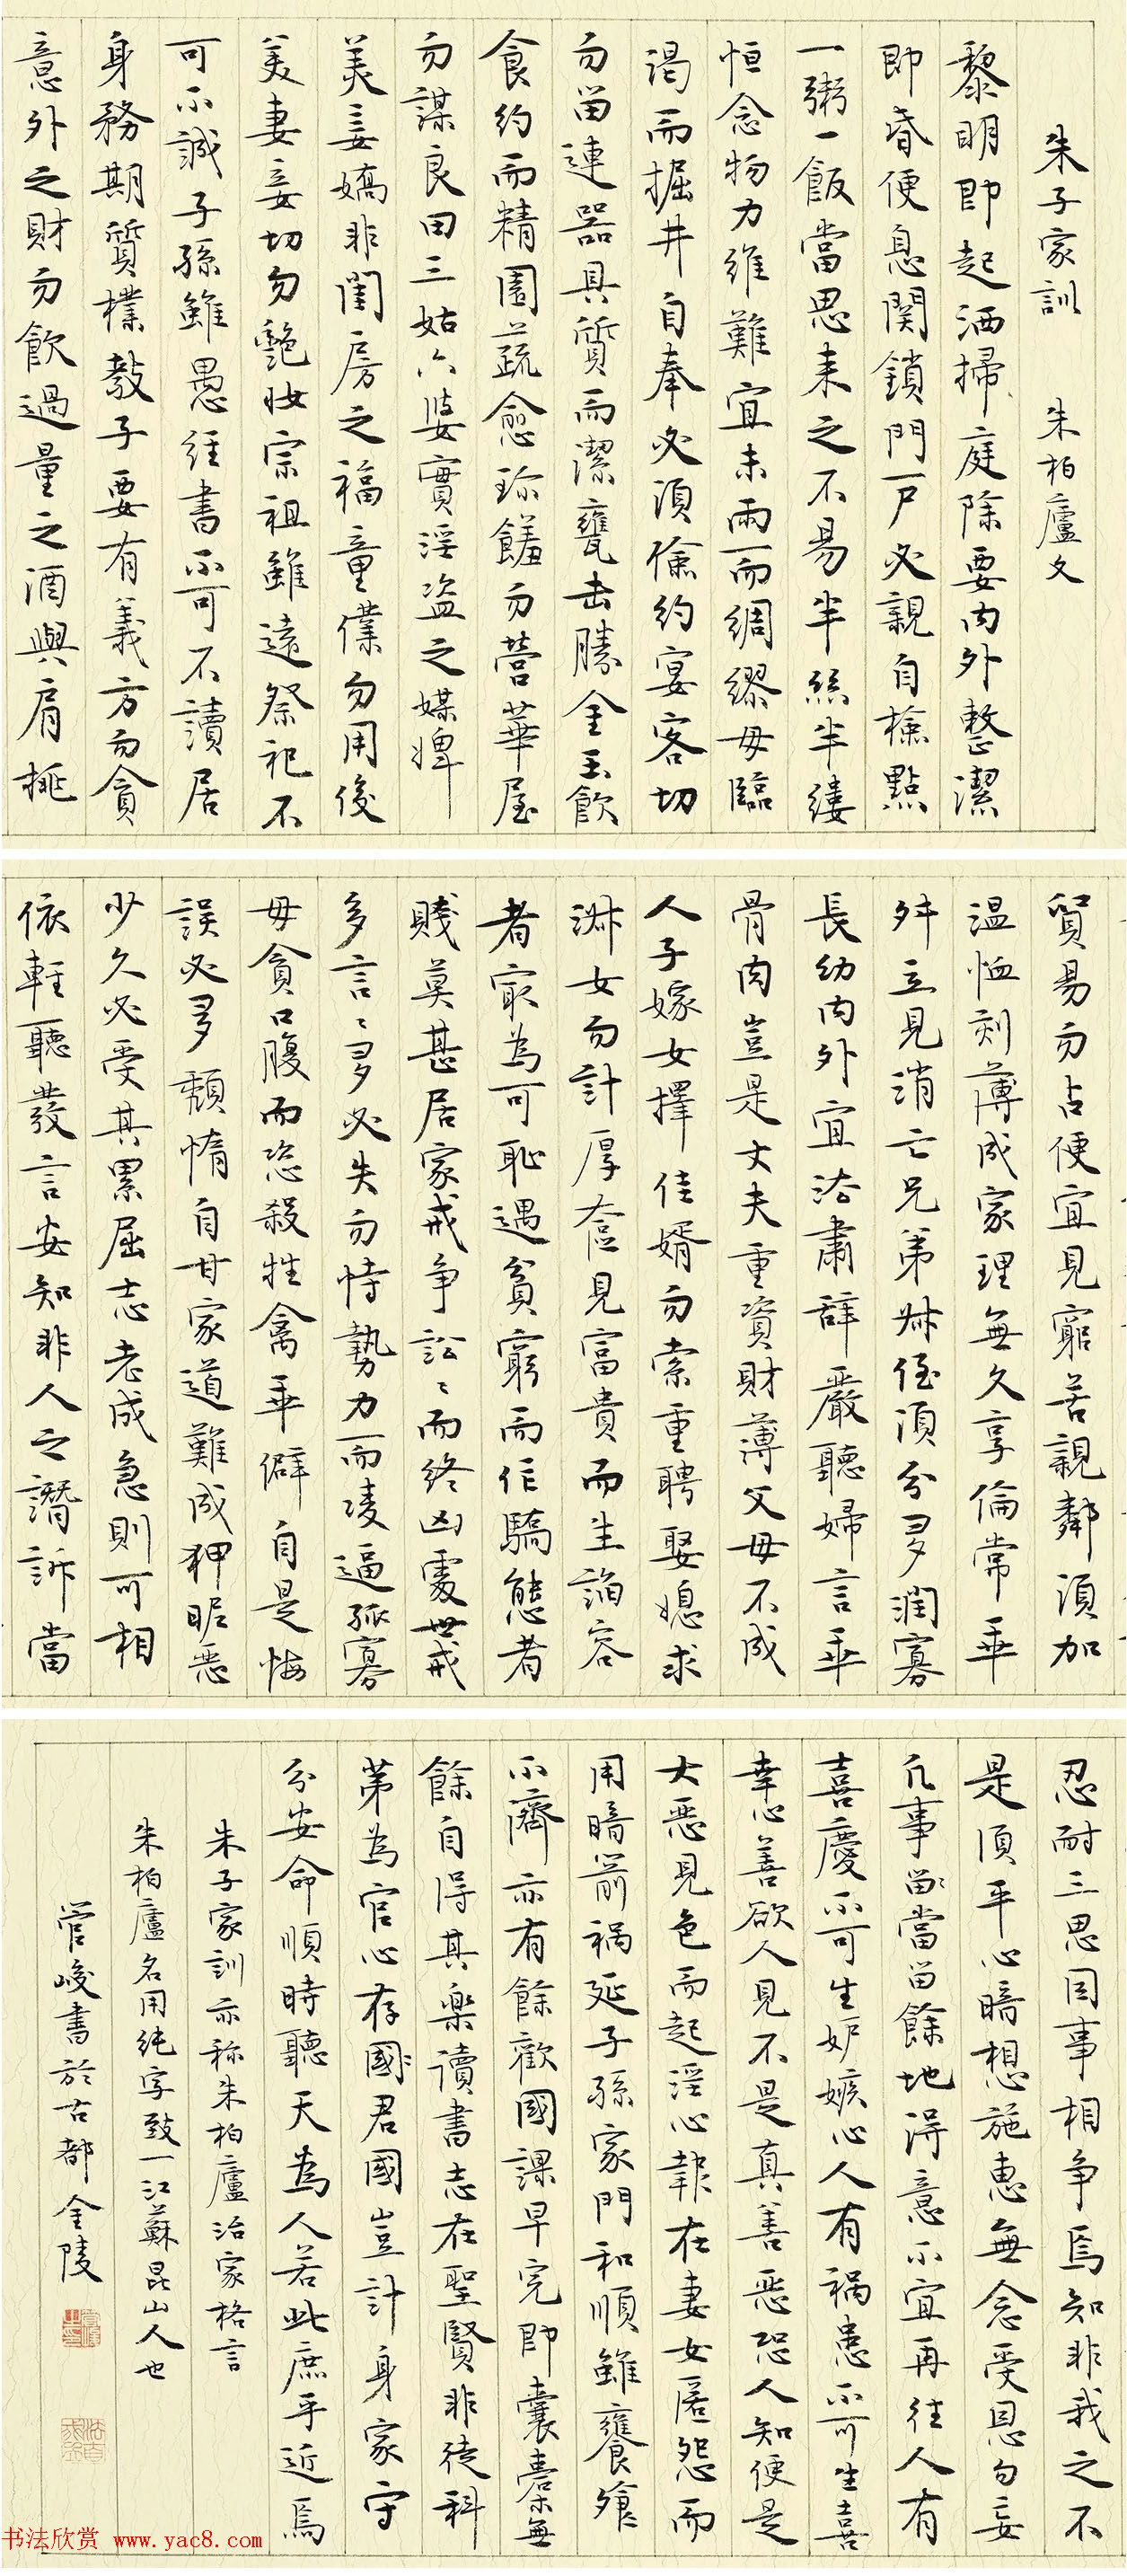 朱子家訓 朱柏廬文
黎明即起洒掃庭除要内外整潔
即昏便息関鎖門户必親自檢點
一粥一飯當思来之不易半絲半縷
恒念物力維難宜未雨而綢繆毋臨
渴而掘井自奉必須儉約宴客切
勿留連器具質而潔甕缶勝金玉飲
食約而精園蔬愈珍饈勿營華屋
勿謀良田三姑六婆實淫盗之媒婢
美妾嬌非閨房之福童僕勿用俊
美妻妾切勿艷妝宗祖雖遠祭祀不
可不誠子孫雖愚經書不可不讀居
身務期質樸教子要有義方勿貪
意外之財勿飲過量之酒與肩挑
貿易勿占便宜見窮苦親鄰須加
温恤刻薄成家理無久享倫常乖
舛立見消亡兄弟叔侄須分多潤寡
長幼内外宜法肅辭嚴聽婦言乖
骨肉豈是丈夫重資財薄父母不成
人子嫁女擇佳婿勿索重聘娶媳求
淑女勿計厚奩見富貴而生諂容
者最為可恥遇貧窮而作驕態者
賤莫甚居家戒争訟訟而終凶處世戒
多言言多必失勿恃勢力而凌逼孤寡
毋貪口腹而恣殺牲禽乖僻自是悔
誤必多頹惰自甘家道難成狎昵惡
少久必受其累屈志老成急則可相
依輕聽發言安知非人之譖訴當
忍耐三思因事相争焉知非我之不
是須平心暗想施惠無念受恩勿妄
凡事當留餘地得意不宜再往人有
喜慶不可生妒嫉心人有禍患不可生喜
幸心善欲人見不是真善惡恐人知便是
大惡見色而起淫心報在妻女匿怨而
用暗箭禍延子孫家門和順雖饔飧
不濟亦有餘歡國課早完即囊橐無
餘自得其樂讀書志在聖賢非徒科
第為官心存國君國豈計身家守
分安命順時聽天為人若此庶乎近焉
朱子家訓亦称朱柏廬治家格言
朱柏廬名用純字致一江蘇昆山人也
管峻書於古都金陵
书法欣赏 www.yac8.com